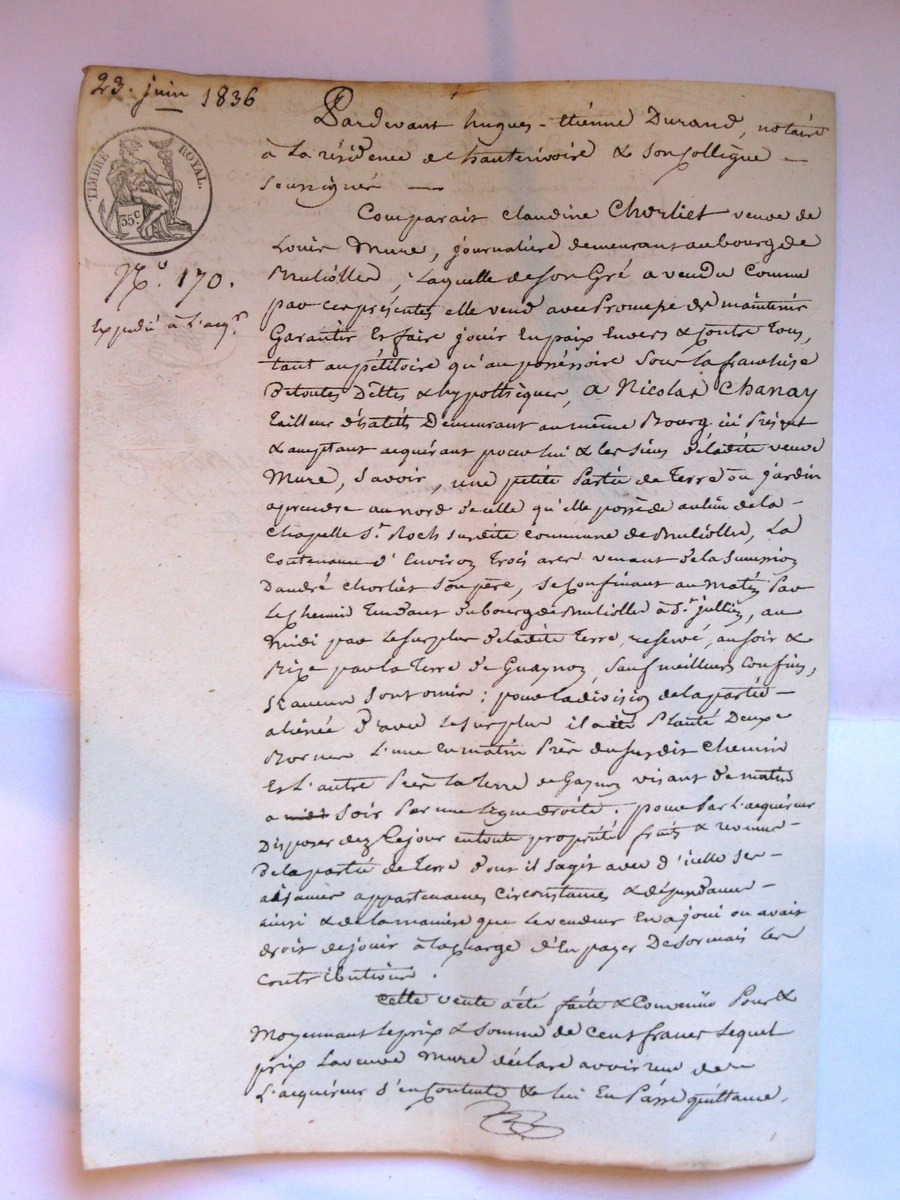 23. juin 1836
TIMBRE ROYAL.
35c
No. 170.
Expédié à l'acqr.
Pardevant hugues-étiénne Durand, notaire
à la résidence d'hauterivoire & son Collègue
soussignés
Comparait Claudine Chorliet veuve de
Louis Mure, journalière demeurant au bourg de
Bruliolles, laquelle de son Gré a vendu comme
par ces présentes elle vend avec Promesse de maintenir
Garantir Et faire jouir En paix Envers & Contre tous,
tant au pétitoire qu'au posséssoire sous la franchise
de toutes Déttes & hypothèques, a Nicolas Chanay
tailleur d'habits Demeurant au même Bourg ici Présent
& acceptant acquérant pour lui & les siens de ladite veuve
Mure, savoir, une petite Partie de Terre ou jardin
aprendre au nord de celle qu'elle possède au lieu de la
Chapelle St. Roch susdite commune de Bruliolles, La
Contenance d'Environ Trois ares venant de la succession
D'andré Chorliet son père, se Confinant au matin Par
le chemin Tendant du bourg de Bruliolles à St. jullien, au
midi par le surplus de ladite Terre, reservé, au soir &
Bize par la Terre de Guaynon, sauf meilleurs Confins,
si aucun sont omis : pour la division de la partie
aliénée d'avec le surplus il a été Planté Deux
Bornes L'une au matin Près du susdit Chemin
Et L'autre Près la Terre de Gaynon visant de matin
a midi soir Par une ligne droite. pour Par L'acquéreur
Disposer dez le jour en toute propriété fruits & revenus
de la partie de Terre dont il s'agit avec d'icelle ses
aisances appartenances Circonstances & dépendances
ainsi & de la manière que le vendeur En a joui ou avait
droit de jouir à la charge d'En payer Desormais les
Contributions.
Cette vente a été faite & Convenüe Pour &
Moyennant le prix & somme de Cent francs lequel
prix La veuve Mure déclare avoir reçu de
L'acquéreur s'en Contente & lui En Passe quittance.